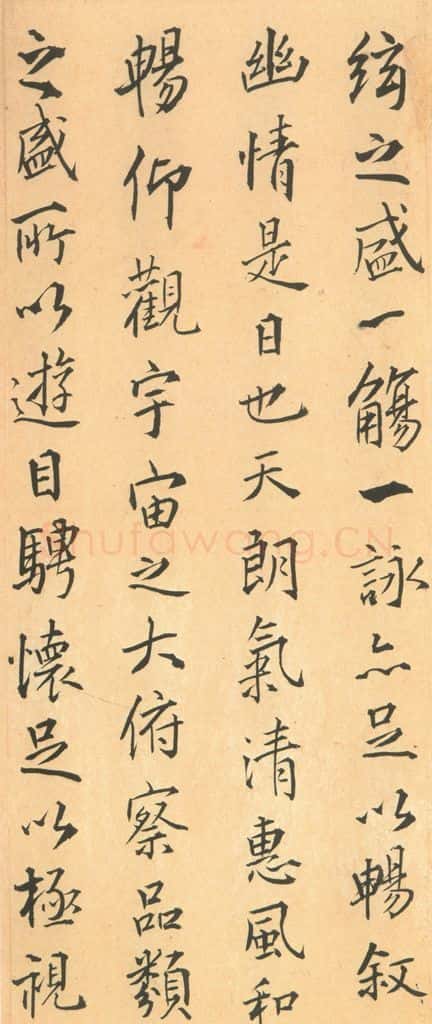 絃之盛一觴一詠亦足以暢叙
幽情是日也天朗氣清惠風和
暢仰觀宇宙之大俯察品類
之盛所以遊目騁懷足以極視
shufawang.CN